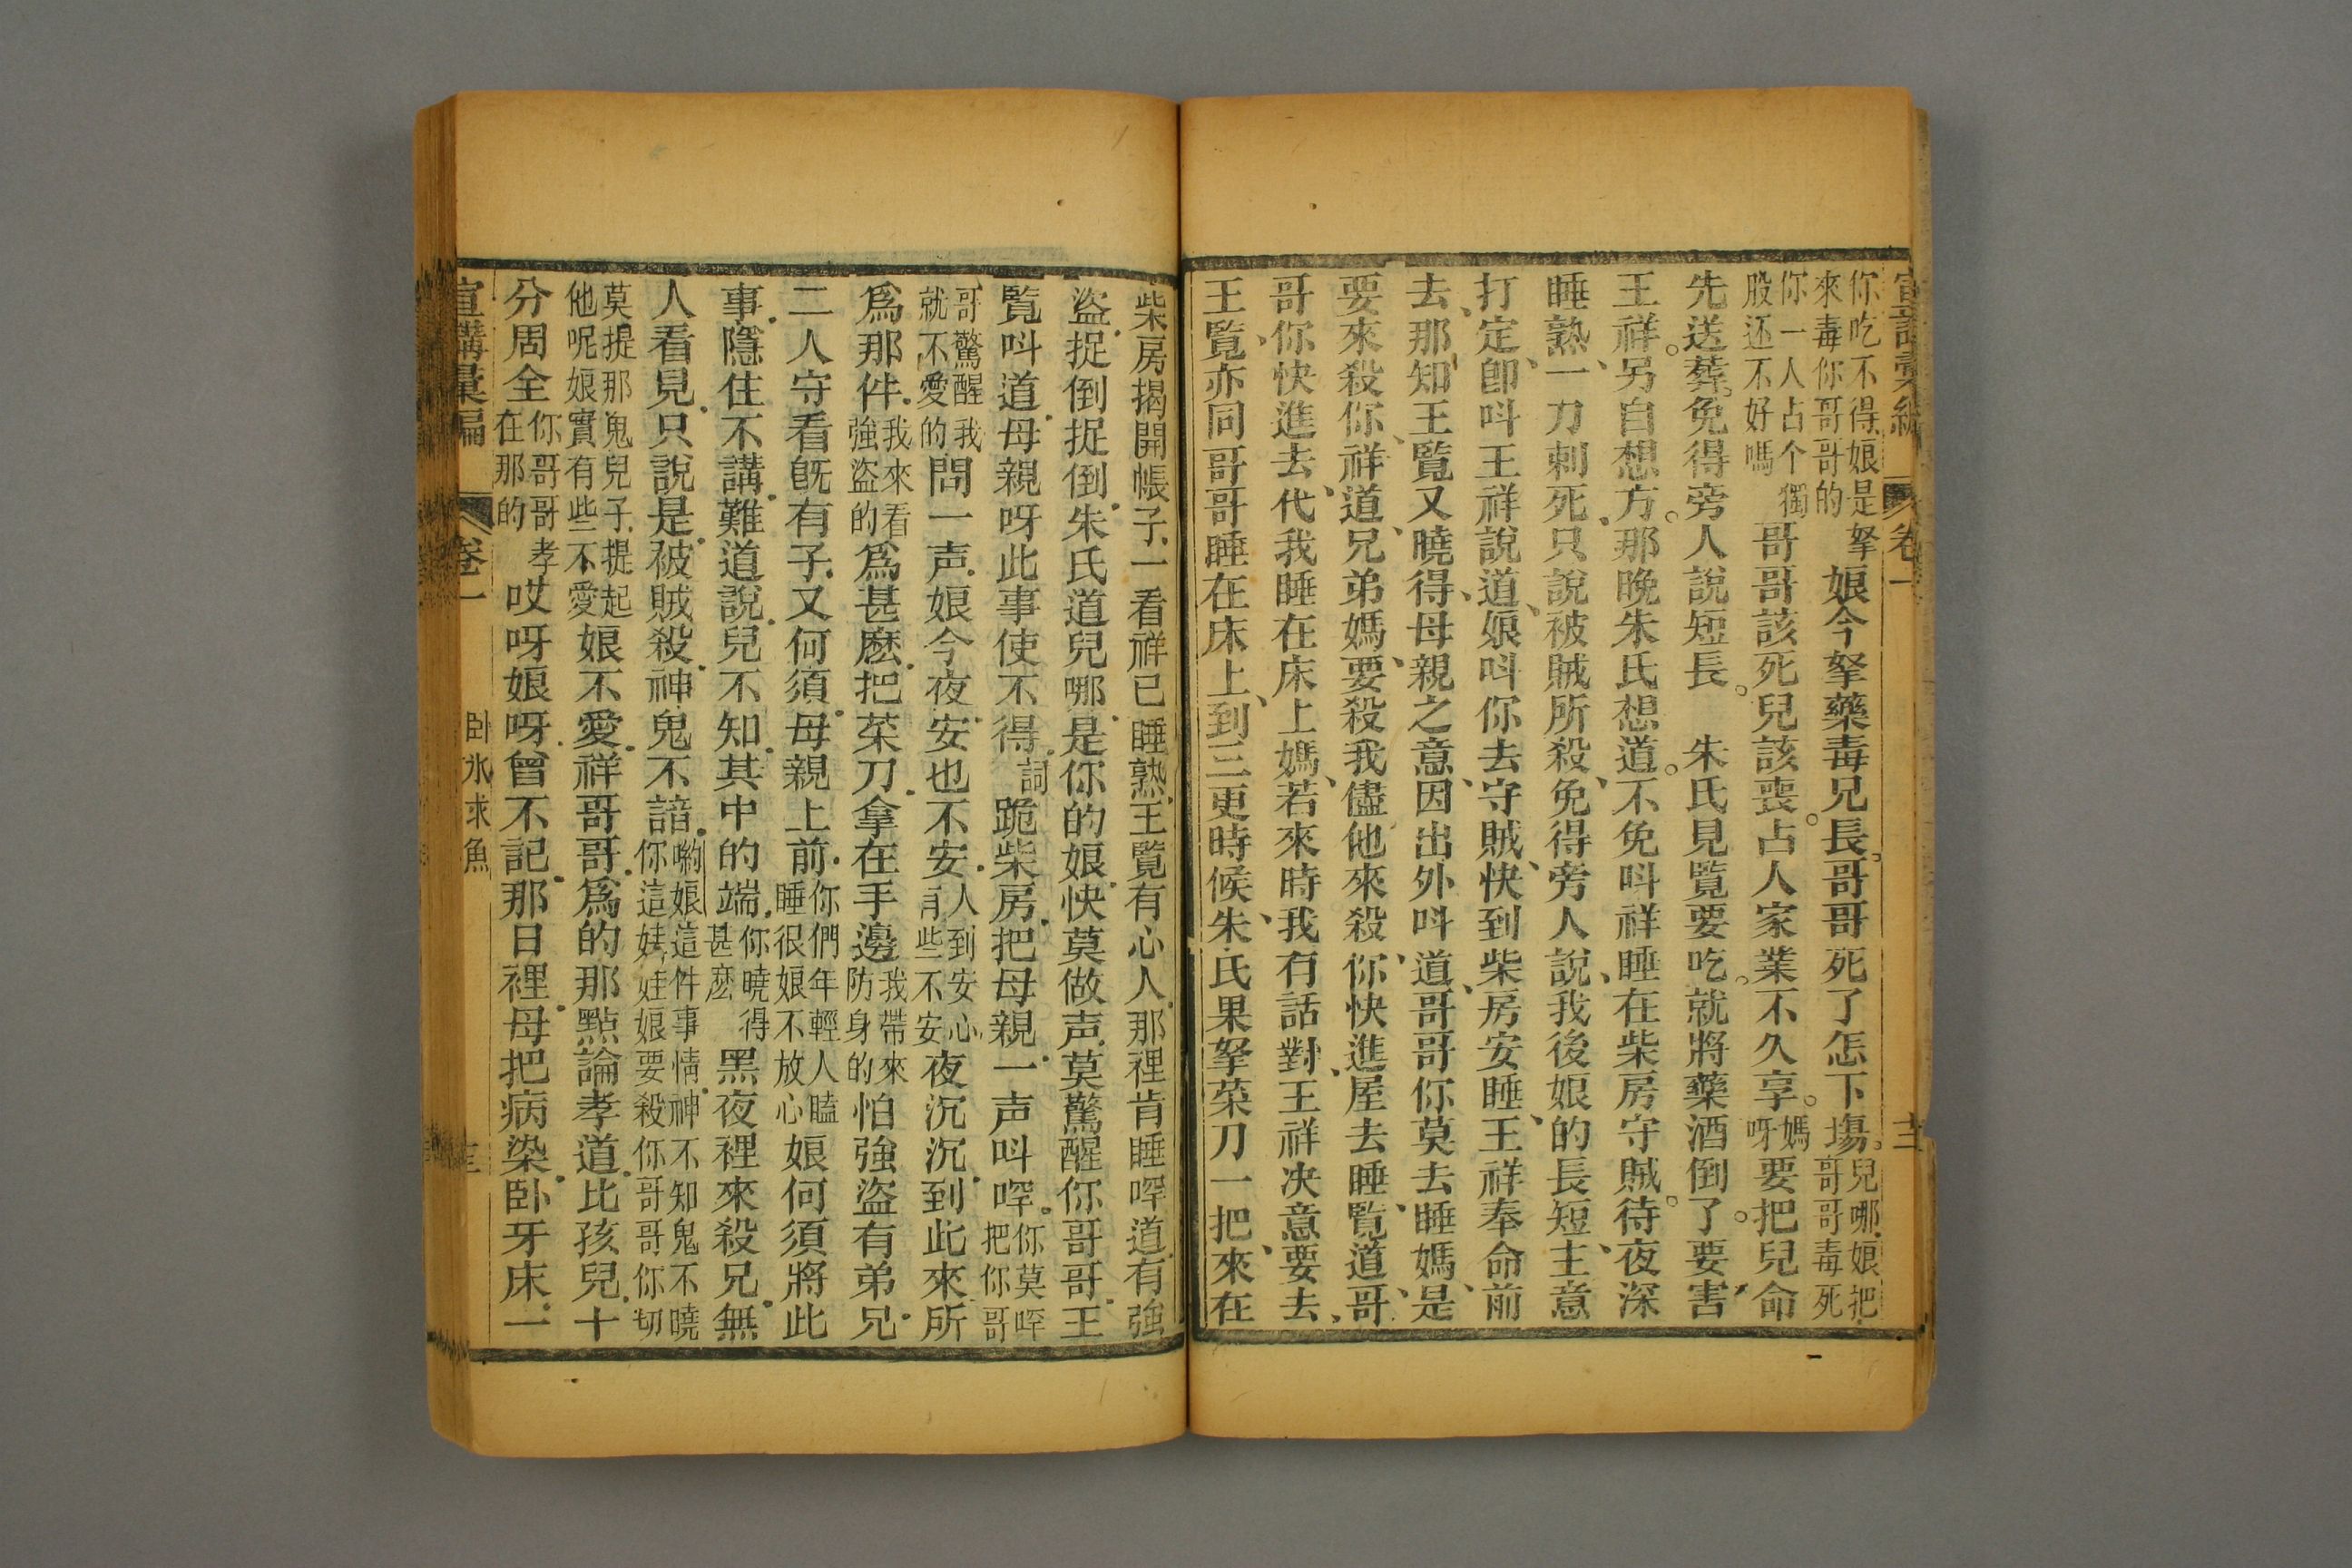 宣講彙編 卷一 十二
你吃不得娘是拏來毒你哥哥的 娘今拏藥毒兄長。哥哥死了怎下塲。兒哪娘把哥哥毒死
你一人占个獨股还不好嗎 哥哥該死兒該喪。占人家業不久享。媽呀要把兒命
先送葬。免得旁人說短長。 朱氏見覽要吃。就將藥酒倒了。要害
王祥。另自想方。那晚朱氏想道。不免呌祥睡在柴房守賊。待夜深
睡熟、一刀刺死、只說被賊所殺、免得旁人說、我後娘的長短、主意
打定、卽呌王祥說道、娘呌你去守賊、快到柴房安睡、王祥奉命前
去、那知王覽又曉得、母親之意、因出外呌道、哥哥你莫去睡、媽是
要來殺你、祥道、兄弟媽、要殺我儘他來殺、你快進屋去睡、覽道、哥
哥你快進去、代我睡在床上、媽、若來時我有話對、王祥决意要去、
王覽、亦同哥哥睡在床上、到三更時候、朱氏果拏菜刀一把、來在
柴房揭開帳子、一看祥已睡熟、王覽有心人、那裡肯睡啈道、有強
盜、捉倒捉倒、朱氏道兒哪、是你的娘、快莫做声、莫驚醒你哥哥、王
覽呌道、母親呀此事使不得、詞 跪柴房、把母親、一声呌啈。你莫啈把你哥
哥驚醒我就不愛的 問一声、娘今夜、安也不安、人到安心有些不安 夜沉沉、到此來、所
爲那件、我來看強盜的 爲甚麽、把菜刀、拿在手邊 我帶來防身的 怕強盜、有弟兄、
二人守看 旣有子、又何須、母親上前、你們年輕人瞌睡很娘不放心 娘何須、將此
事、隱住不講、難道說、兒不知、其中的端、你曉得甚麽 黑夜裡、來殺兄、無
人看見、只說是、被賊殺、神鬼不諳、喲娘這件事情、神不知鬼不曉你這娃娃娘要殺你哥哥你切
莫提那鬼兒子、提起他呢娘實有些不愛 娘不愛、祥哥哥、爲的那㸃 論孝道、比孩兒、十
分周全 你哥哥孝在那的 哎呀娘呀、曾不記、那日裡、母把病染、卧牙床、一
宣講彙編 卷一 卧氷求魚 十三